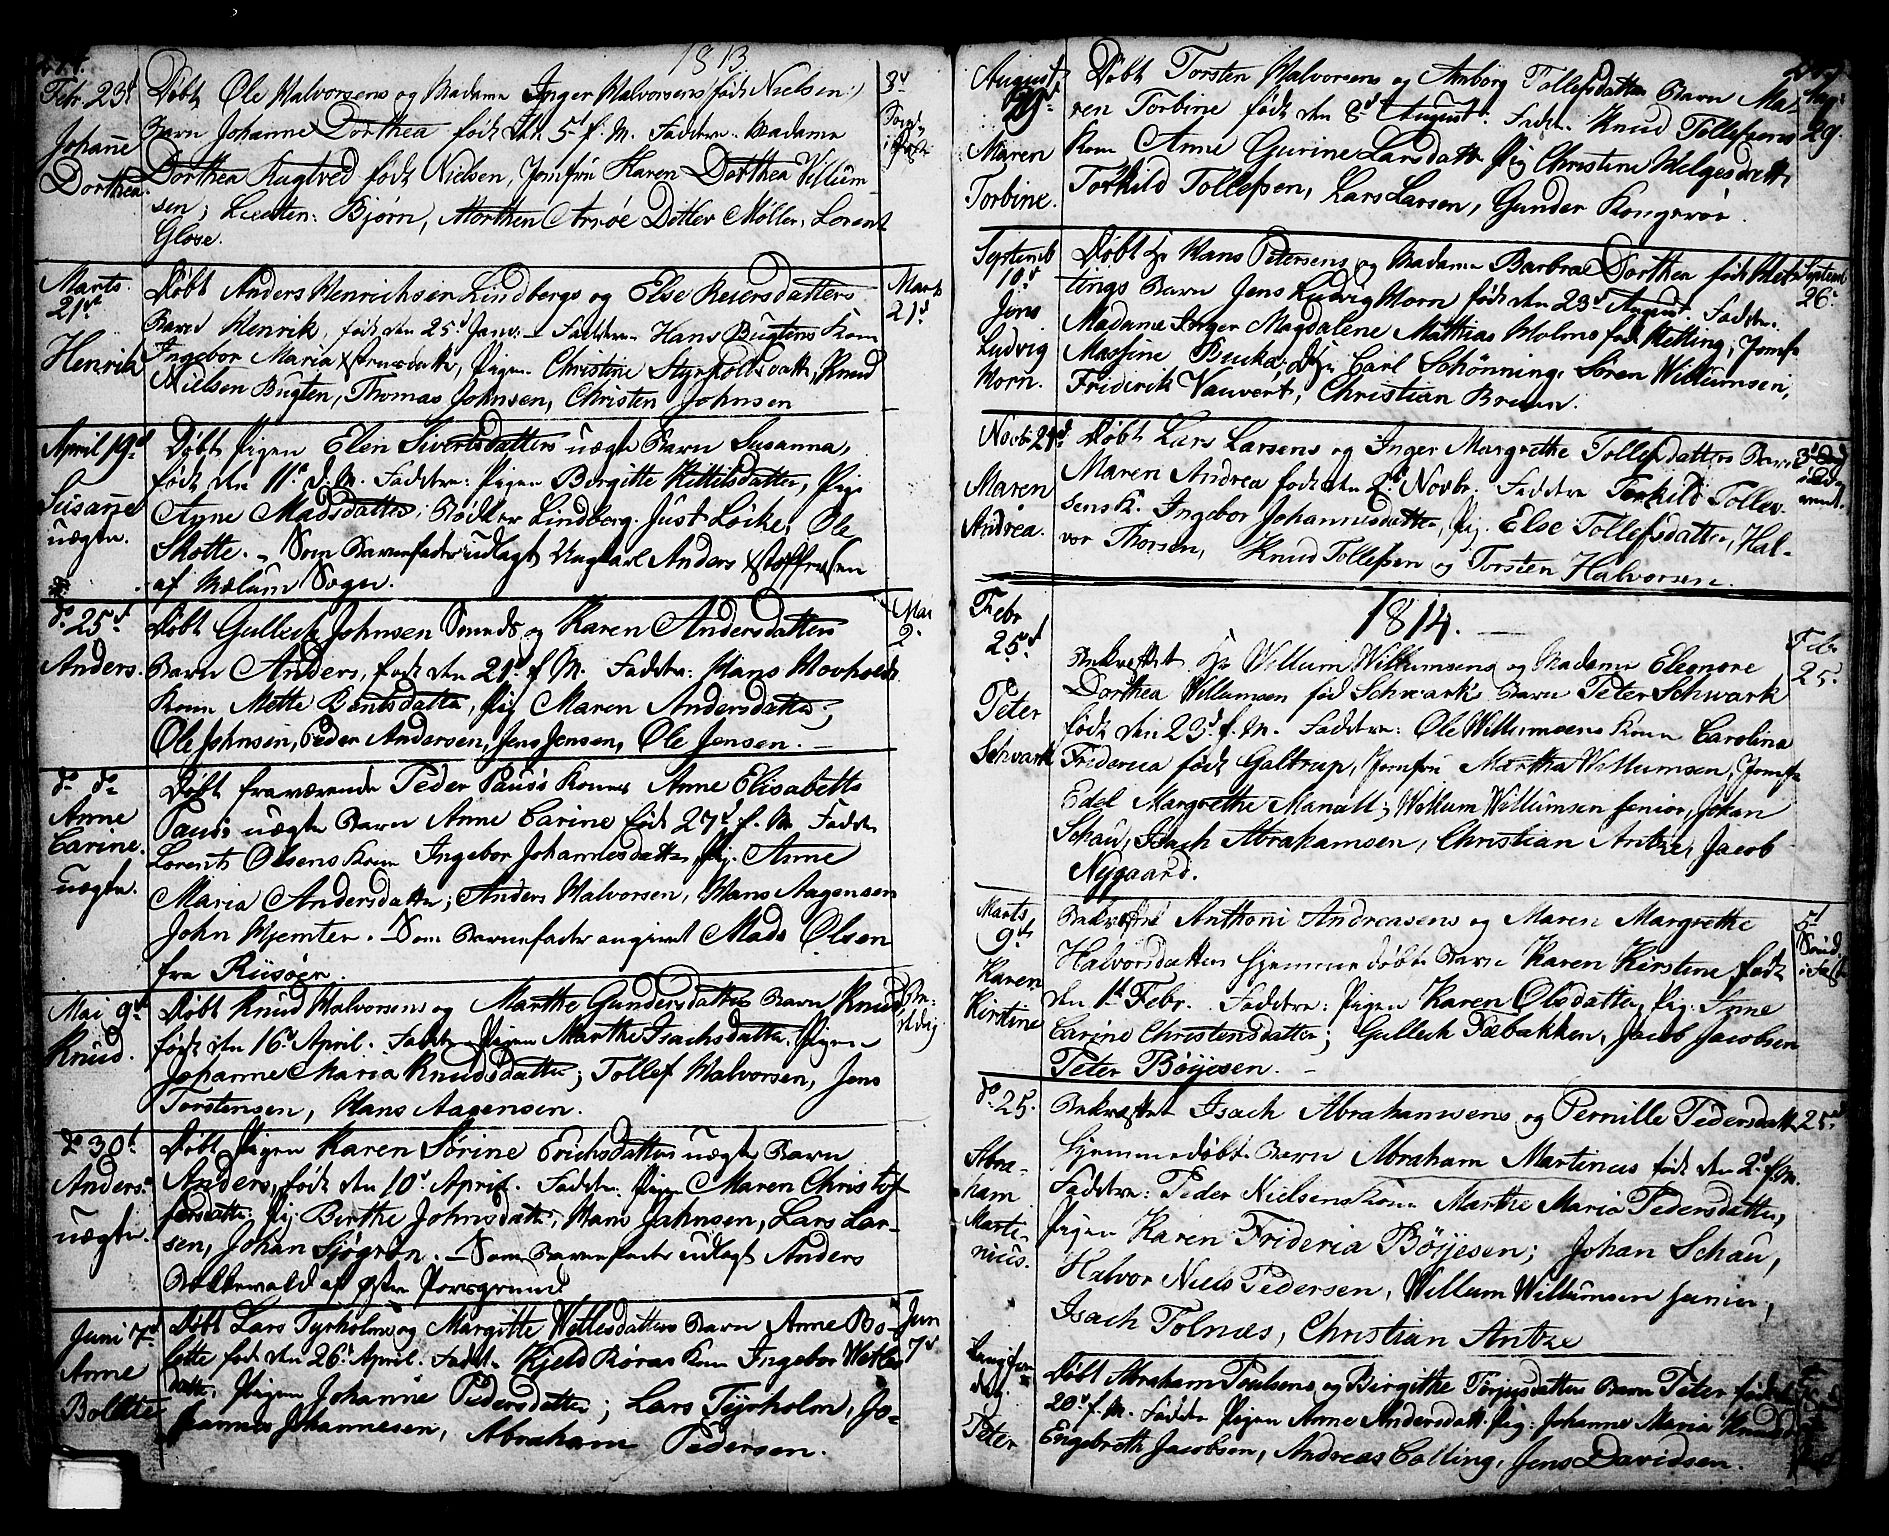 1813
Febr. 23d
Døbt Ole Halvorsens og Madame Inger Halvorsens (født Nielsen:)
3d
Johanne
Dorthea.
Barn Johanne Dorthea født den 5d f. M. Faddere: Madame
Dorthea Kugtved født Nielsen, Jomfru Karen Dorthea Villum-
sen; Bjørn, Morthen Detlev Møller, Lorent
Gløse.
Marts
21d
Henrik
Døbt Anders Henrichsen Lindbergs og Else Reiersdatters
Barn Henrik, født den 25d Janv: Faddere Hans Bugtens Kone
Ingebor Maria Pigen Christine Styrkolsdatter, Knud
Nielsen Bugten, Thomas Johnsen, Christen Johnsen
Marts
21d
April 19d
Susanne
uægte.
Døbt Pigen Elen Sivertsdatters uægte Barn Susanna,
født den 11te d. M. Faddere: Pigen Birgitte Kittilsdatter, Pige
Anne Madsdatter; Bødker Lindberg. Just Løike; Ole
Skotte. Som Barnefader udlagt Ungkarl Anders Stoffersen
af Mælum Sogn.
do 25d
Anders.
Døbt Gullech Johnsen og Karen Andersdatters
Barn Anders, født den 21d f. M. Faddere: Hans Hovholdts
Kone Mette Bentsdatter, Pig. Maren Andersdatter;
Ole Johnsen, Peder Andersen, Jens Jensen, Ole Jensen.
Mai
2.
do do
Anne
Carine.
uægte.
Døbt fraværende Peder Paus's Kones Anne Elisabeth
Paus's uægte Barn Anne Carine født 27d f. M. Faddere
Lorents Olsens Kone Ingebor Johannesdatter, Pig. Anne
Maria Andersdatter; Anders Halvorsen, Hans Aagensen
John Hjemter. Som Barnefader angivet Mads Olsen
fra Riisøer.
Mai 9d
Knud.
Døbt Knud Halvorsens og Marthe Gundersdatters Barn Knud
født den 16d April. Faddere Pigen Marthe Isachsdatter, Pigen
Johanne Maria Knudsdatter; Tollef Halvorsen, Jens
Torstensen, Hans Aagensen.
do 30d
Anders.
uægte.
Døbt Pigen Karen Sørine Erichsdatters uægte Barn
Anders, født den 10d April. Faddere: Pigen Maren Christof
fersdatter Pig. Birthe Johnsdatter, Hans Jahnsen, Lars Lar-
sen, Johan Sjøgren. Som Barnefader udlagt Anders
af Øster Porsgrund
Juni 7d
Anne
Bolette
Døbt Lars Tyrholms og Margitte Vetlesdatters Barn Anne Bo-
lette født den 26d April. Faddere Kjeld Røras Kone Ingebor Vetles
datter, Pigen Johanne Pedersdatter; Lars Tyrholm, Jo-
hannes Johannesen, Abraham Pedersen.
Jun
7d
August
29d
Maren
Torbine.
Døbt Torsten Halvorsens og Anborg Tollefsdatters Barn Ma-
ren Torbine født den 8d August. Faddere Knud Tollefsens
Kone Anne Gurine Larsdatter Pig Christine Helgesdatter
Torkild Tollefsen, Lars Larsen, Gunder Kongerød.
Aug:
29.
Septemb
10d
Jens
Ludvig
Horn.
Døbt Hr Hans Petersens og Madame Barbra Dorthea født
tings Barn Jens Ludvig Horn født den 23d August. Faddere
Madame Inger Magdalene Mathias Holms født Ketting; Jomfr
Massine Buck; Hr Carl Schønning, Søren Willumsen,
Friderik Vauvert, Christian Bruun.
Septemb
26.
Novbr 21d
Maren
Andrea.
Døbt Lars Larsens og Inger Margrethe Tollefsdatters Barn
Maren Andrea født den 2d Novbr. Faddere Torkild Tollev
sens K. Ingebor Johannesdatter, Pig. Else Tollefsdatter, Hal-
vor Thorsen, Knud Tollefsen og Torsten Halvorsen.
1814.
Febr
25d
Peter
Schwark
Bekræftet Hr Willum Willumsens og Madame Eleonore
Dorthea Willumsen fød Schwark Barn Peter Schwark
født den 23d f. M. Faddere: Ole Willumsens Kone Carolina
Friderica født Galtrup, Jomfru Martha Willumsen, Jomfr
Edel Margrethe Manall; Willum Willumsen senior, Johan
Schau, Isach Abrahamsen, Christian Antze, Jacob
Nygaard.
Febr
25d
Marts
9d
Karen
Kirstine
Bekræftet Anthoni Andreasens og Maren Margrethe
Halvorsdatters hjemmedøbte Barn Karen Kirstine født
den 1d Febr. Faddere: Pigen Karen Olsdatter, Pig. Anne
Carine Christensdatter; Gullech Fæbakken, Jacob Jacobsen
Peter Børjesen.
do 25.
Abra-
ham
Marti-
nius.
Bekræftet Isach Abrahamsens og Pernille Pedersdatters
hjemmedøbte Barn Abraham Martinus født den 2d f. M.
Faddere: Peder Nielsens Kone Marthe Maria Pedersdatter,
Pigen Karen Frideria Børjesen; Johan Schau,
Halvor Niels Pedersen, Willum Willumsen junior,
Isach Tolnæs, Christian Antze
25d
Langfre
dag.
Peter
Døbt Abraham Poulsens og Birgithe Torjusdatters Barn Peter født
20d f. M. Faddere Pigen Anne Andersdatt. Pig: Johanne Maria Knudsd
Engebreth Jacobsen, Andreas Colling, Jens Davidsen.